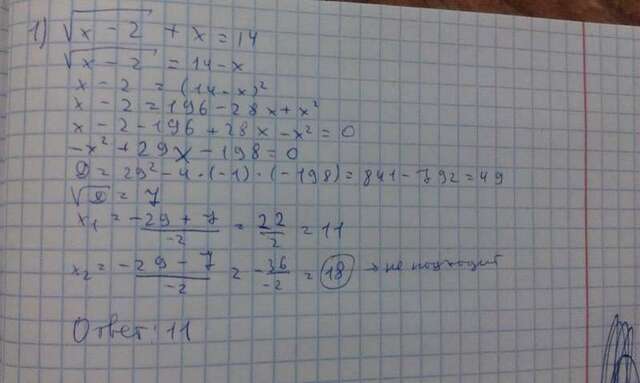 1) √(x - 2) + x = 14
√(x - 2) = 14 - x
x - 2 = (14 - x)²
x - 2 = 196 - 28x + x²
x - 2 - 196 + 28x - x² = 0
-x² + 29x - 198 = 0
D = 29² - 4 · (-1) · (-198) = 841 - 792 = 49
√D = 7
x₁ = (-29 + 7)/(-2) = 22/2 = 11
x₂ = (-29 - 7)/(-2) = (-36)/(-2) = 18 → не подходит
Ответ: 11